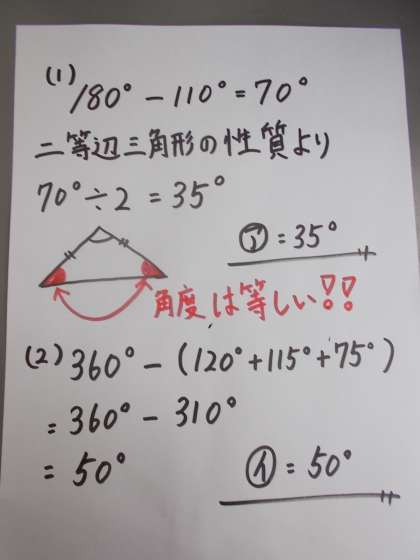 (1)
180° − 110° = 70°
二等辺三角形の性質より
70° ÷ 2 = 35°
㋐ = 35°
角度は等しい!!
(2) 360° − (120° + 115° + 75°)
= 360° − 310°
= 50°
㋑ = 50°